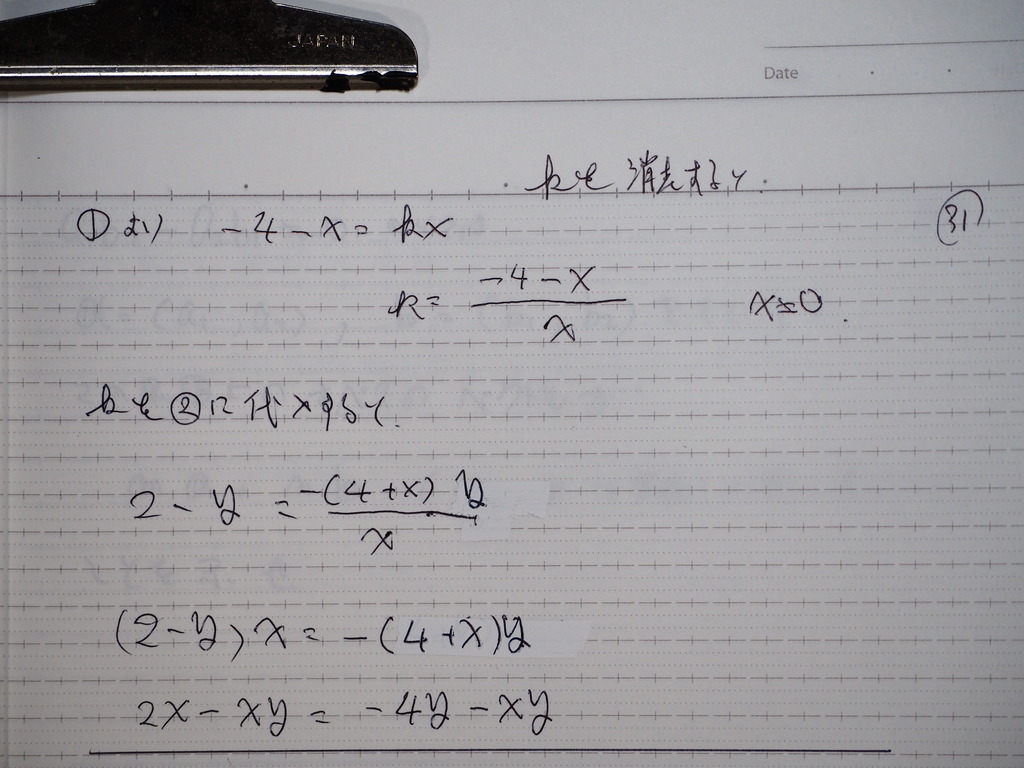 JAPAN
Date
kを消去すると.
①より -4-x=kx
(31)
k=\frac{-4-x}{x} x≠0.
kを②に代入すると.
2-y=\frac{-(4+x)y}{x}
(2-y)x=-(4+x)y
2x-xy=-4y-xy